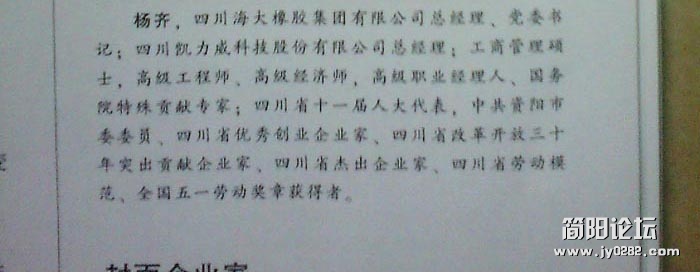 杨齐，四川海大橡胶集团有限公司总经理、党委书
记；四川凯力威科技股份有限公司总经理；工商管理硕
士，高级工程师、高级经济师，高级职业经理人、国务
院特殊贡献专家；四川省十一届人大代表，中共资阳市
委委员、四川省优秀创业企业家、四川省改革开放三十
年突出贡献企业家、四川省杰出企业家、四川省劳动模
范、全国五一劳动奖章获得者。
封面企业家
简阳论坛
www.jy0282.com